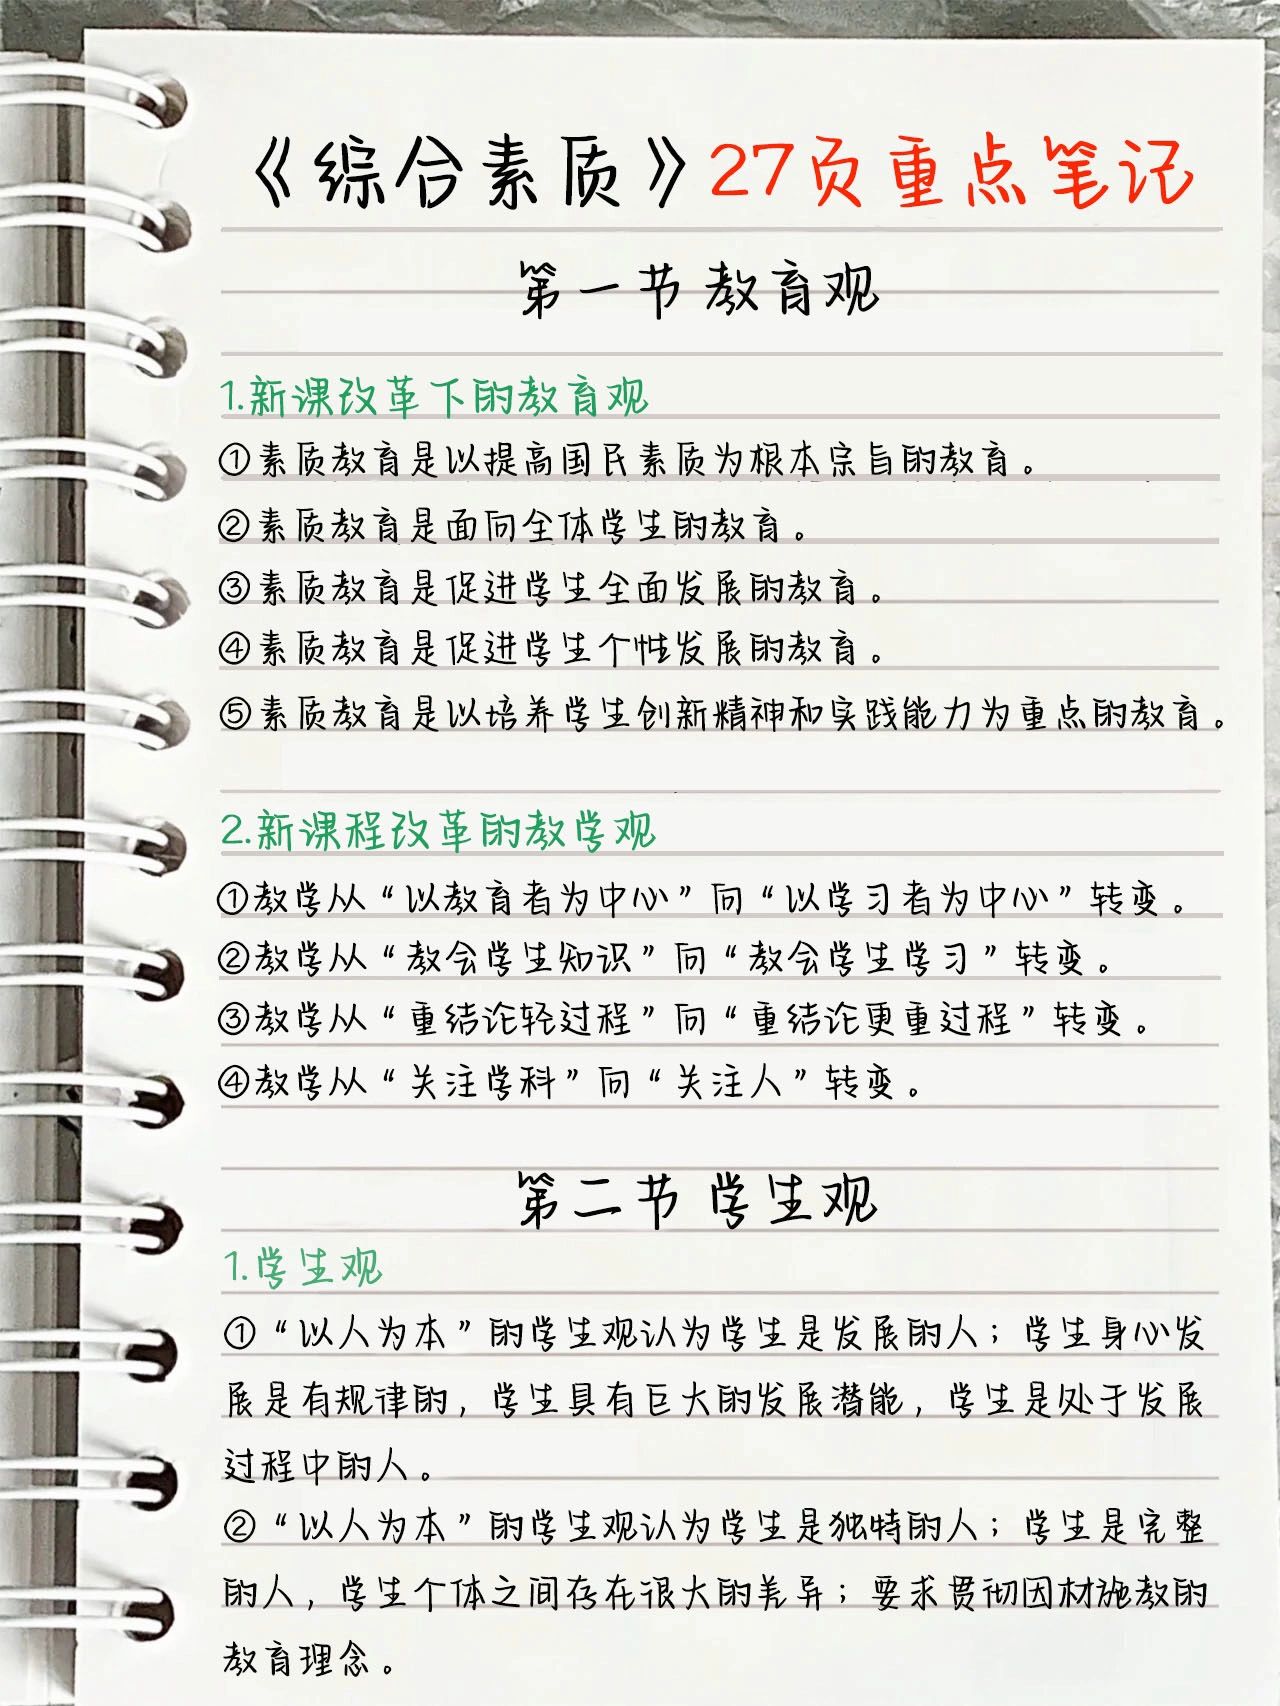 《综合素质》27页重点笔记
第一节 教育观
1.新课改革下的教育观
①素质教育是以提高国民素质为根本宗旨的教育。
②素质教育是面向全体学生的教育。
③素质教育是促进学生全面发展的教育。
④素质教育是促进学生个性发展的教育。
⑤素质教育是以培养学生创新精神和实践能力为重点的教育。
2.新课程改革的教学观
①教学从“以教育者为中心”向“以学习者为中心”转变。
②教学从“教会学生知识”向“教会学生学习”转变。
③教学从“重结论轻过程”向“重结论更重过程”转变。
④教学从“关注学科”向“关注人”转变。
第二节 学生观
1.学生观
①“以人为本”的学生观认为学生是发展的人；学生身心发
展是有规律的，学生具有巨大的发展潜能，学生是处于发展
过程中的人。
②“以人为本”的学生观认为学生是独特的人；学生是完整
的人，学生个体之间存在很大的差异；要求贯彻因材施教的
教育理念。